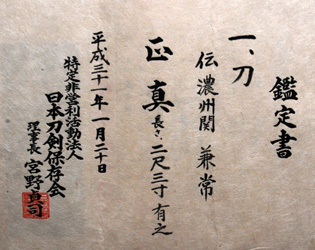 鑑定書
一、刀
伝濃州関 兼常
正真 長さ、二尺三寸 有之
平成三十一年一月二十日
特定非営利活動法人
日本刀剣保存会
理事長 宮野貞司